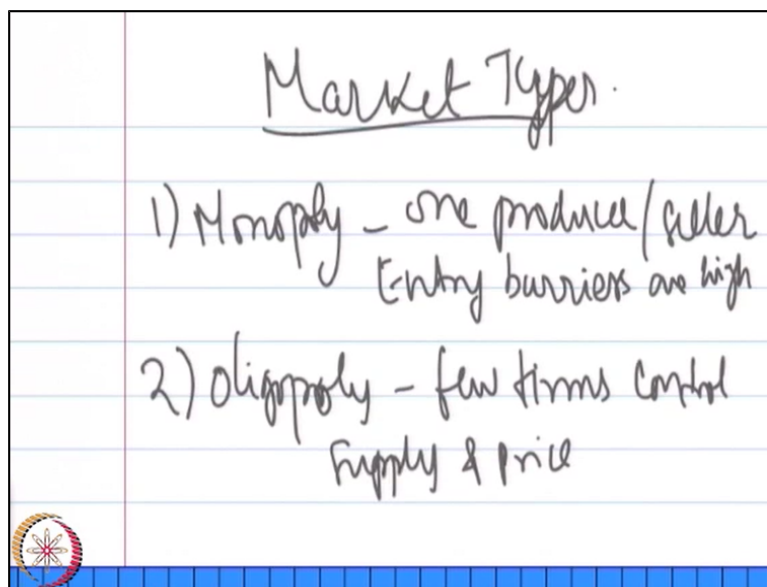 Market Types.
1) Monoply - one producer/seller
Entry barriers are high
2) Oligopoly - few firms control
supply & price